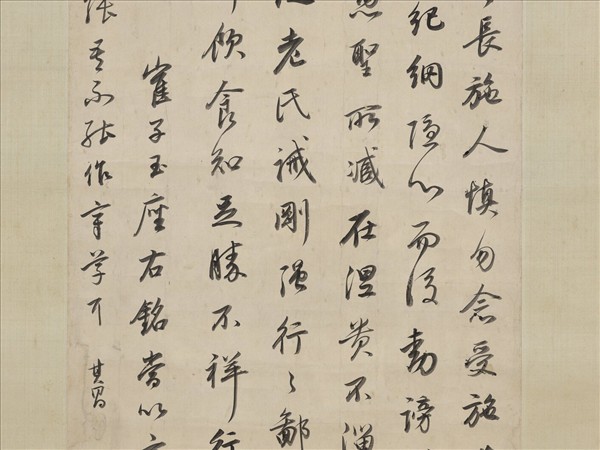 長施人慎勿念受施
紀綱隱心而後動謗
愚聖所臧在涅貴不淄
老氏誡剛強行〻鄙
飲食知足勝不祥行
崔子玉座右銘嘗以
不能作章
其昌